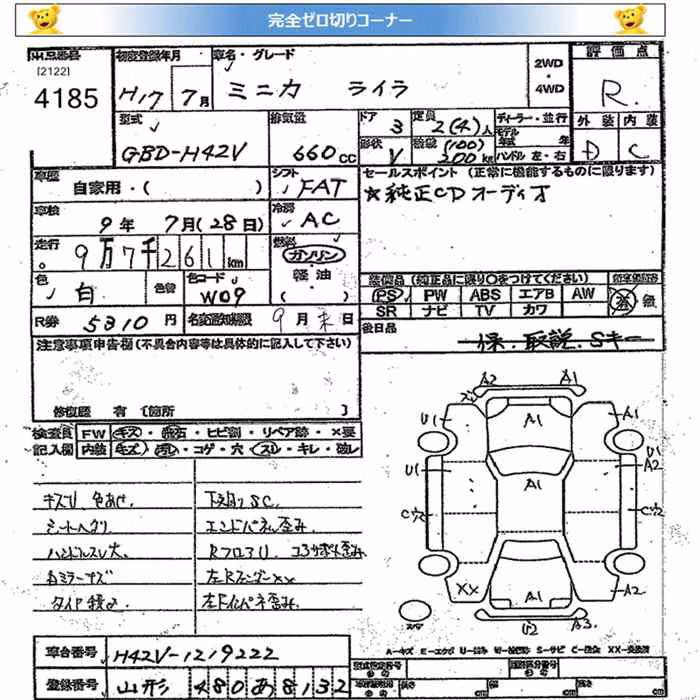 完全ゼロ切りコーナー
出品番号 初度登録年月 車名・グレード 2WD・4WD 評価点
[2122]
4185 H17 7月 ミニカ ライラ R
型式 排気量 ドア 定員 ディーラー・並行 外装 内装
GBD-H42V 660cc 3 2(4)人 モデル年式 年 D C
形状 V 積載 (100) 200kg ハンドル 左・右
車歴 シフト セールスポイント (正常に機能するものに限ります)
自家用・( ) FAT ☆純正CDオーディオ
車検 冷房
9年 7月(28日) AC
走行 燃料
9万7千261km ガソリン
軽油
色 色替 カラーコード 装備品 (純正品に限り〇をつけてください)
白 W09 ( ) PS PW ABS エアB AW 無
SR ナビ TV カワ
R券 5310円 名変期限 9月末日 後日品 保. 取説. Sキー
注意事項申告欄 (不具合内容等は具体的に記入して下さい)
修復歴 有 [箇所 ]
検査員 FW キズ・飛石・ヒビ割・リペア跡・×要
記入欄 内装 キズ・汚れ・コゲ・穴・スレ・キレ・破レ
キズU 色あせ 下廻りSC
シートヘタリ エンドパネル歪み
ハンドルスレ大 RフロアU コアサポ歪み
右ミラーキズ 左Rフェンダーxx
左Fインパネ歪み
A2 A1
U1 A1 A1
U1 A1 A2
C穴 C穴
XX A1 A2
U2 A3
A-キズ E-エクボ U-凹み S-サビ C-腐食 XX-交換済
車台番号 H42V-1219222 型式指定番号 類別区分番号
登録番号 山形 480あ8132 長さ cm 幅 cm 高さ cm